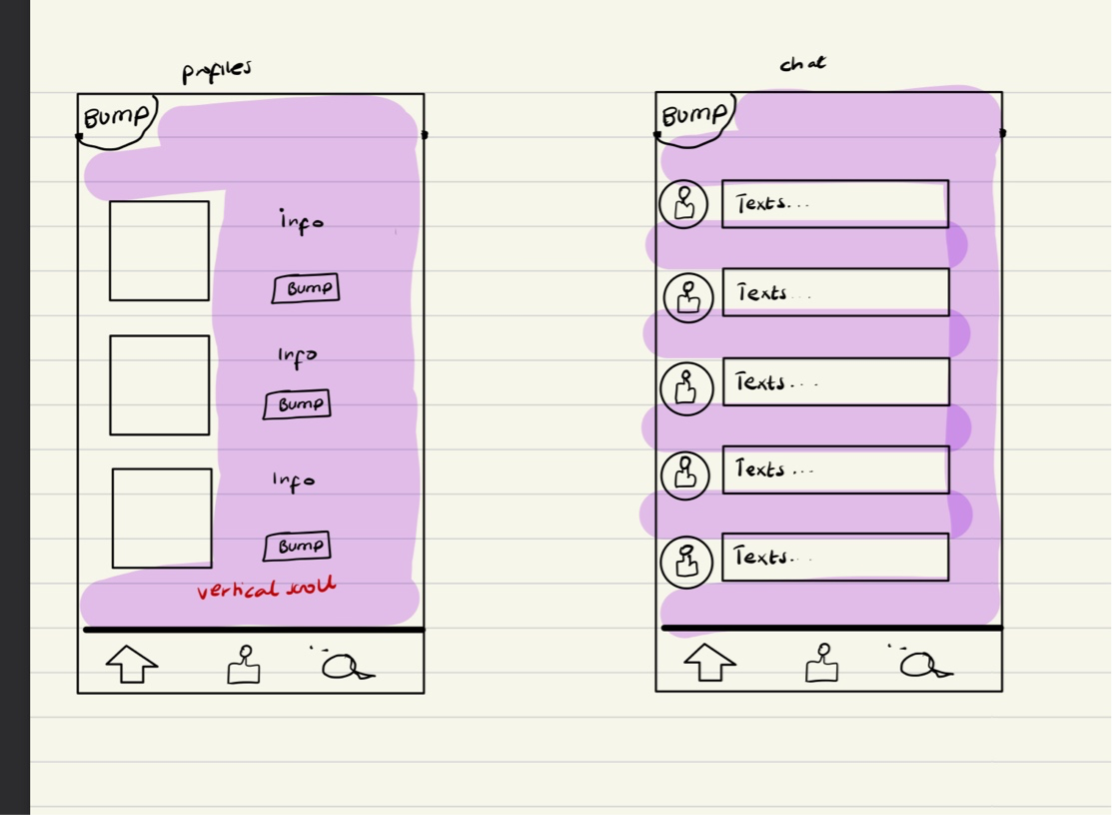 profiles
BUMP
info
Bump
Info
Bump
Info
Bump
vertical scroll
chat
BUMP
Texts...
Texts...
Texts...
Texts...
Texts...